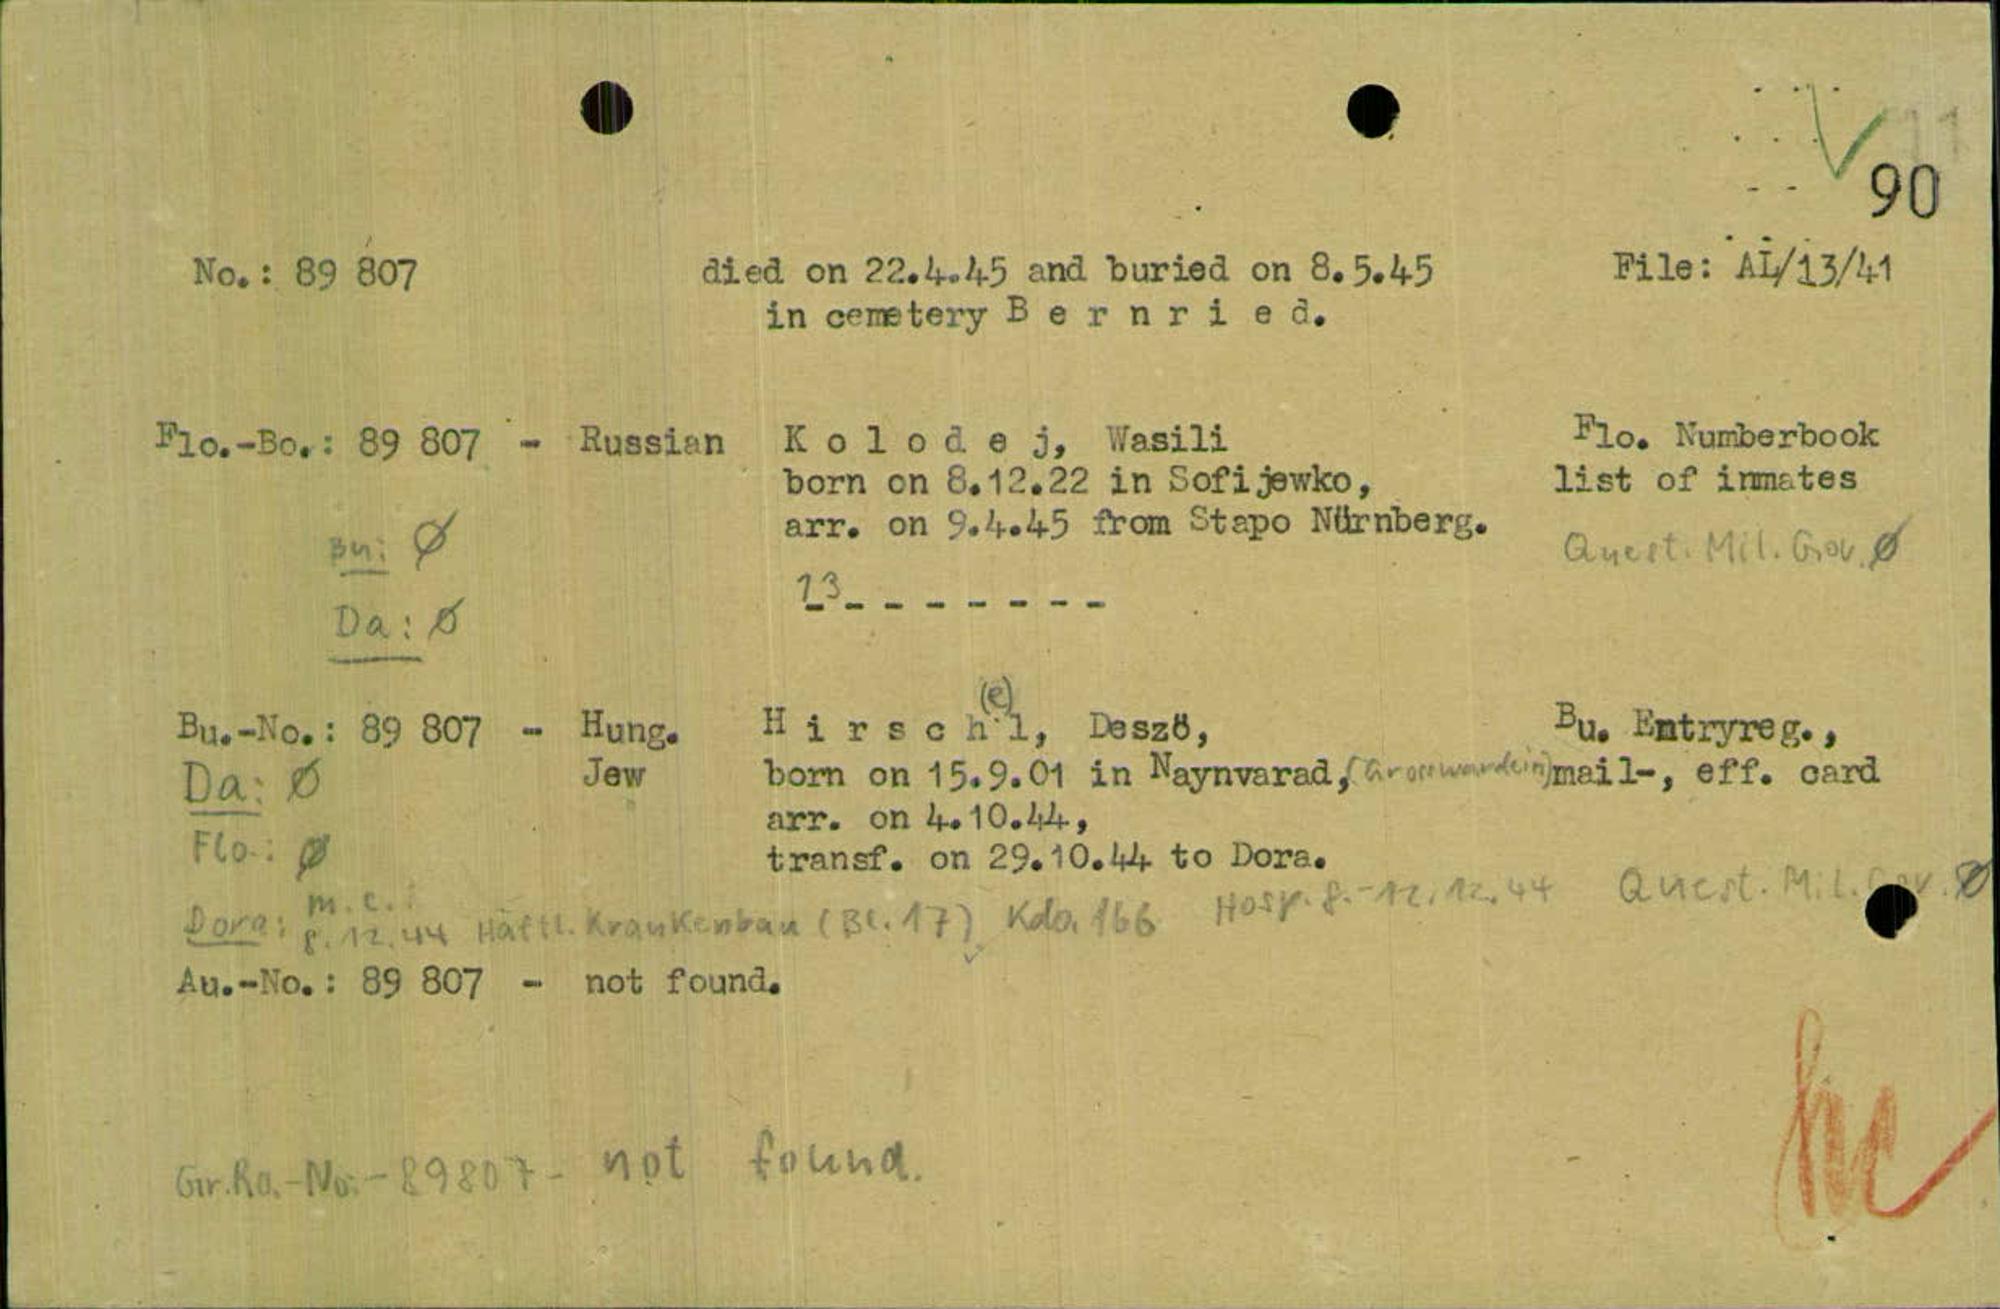 11
90
No.: 89 807 died on 22.4.45 and buried on 8.5.45 File: AL/13/41
in cemetery B e r n r i e d.
Flo.-Bo.: 89 807 - Russian K o l o d e j, Wasili Flo. Numberbook
born on 8.12.22 in Sofijewko, list of inmates
arr. on 9.4.45 from Stapo Nürnberg.
Bu: Ø Quest. Mil. Gov. Ø
13 - - - - - - - -
Da: Ø
(e)
Bu.-No.: 89 807 - Hung. H i r s c h l, Deszö, Bu. Entryreg.,
Jew born on 15.9.01 in Naynvarad, (Grosswardein) mail-, eff. card
Da: Ø
arr. on 4.10.44,
Flo.: Ø transf. on 29.10.44 to Dora.
m.c.: Hosp. 8.-12.12.44 Quest. Mil. Gov. Ø
Dora: 8.12.44 Häftl. Krankenbau (Bl. 17) Kdo. 166
Au.-No.: 89 807 - not found.
Gr.Ro.-No.-89807- not found.